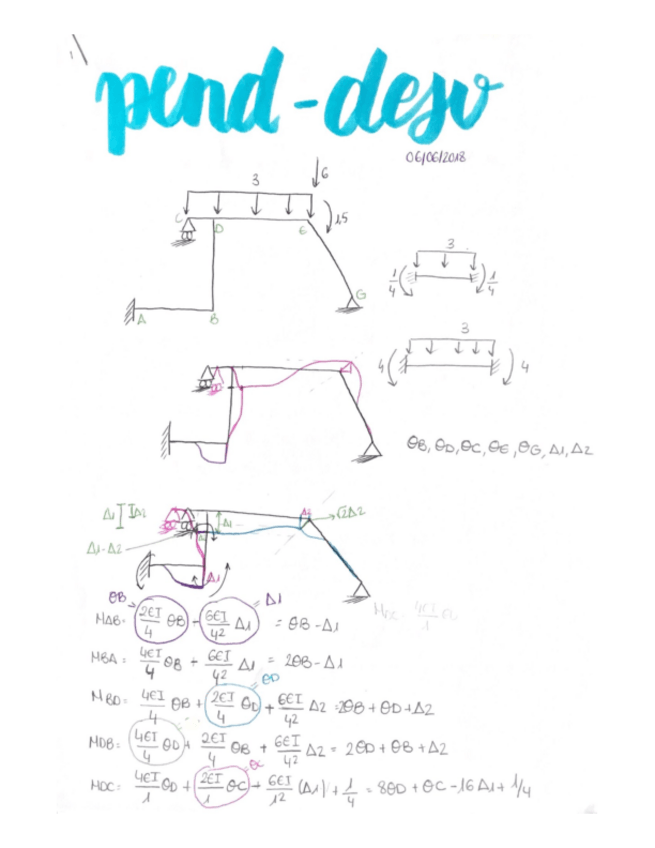 1)
pend-desv
06/06/2018
3
6
1,5
C
D
E
A
B
G
3
1/4
1/4
3
4
4
θB, θD, θC, θE, θG, Δ1, Δ2
Δ1
Δ2
Δ1
Δ2
√2Δ2
Δ1-Δ2
Δ1
MAB = 2EI/4 θB - 6EI/4² Δ1 = θB - Δ1
θB
Δ1
MDC = 4EI/1
MBA = 4EI/4 θB + 6EI/4² Δ1 = 2θB - Δ1
MBD = 4EI/4 θB + 2EI/4 θD + 6EI/4² Δ2 = 2θB + θD + Δ2
θD
MDB = 4EI/4 θD + 2EI/4 θB + 6EI/4² Δ2 = 2θD + θB + Δ2
MDC = 4EI/1 θD + 2EI/1 θC + 6EI/1² (Δ1) + 1/4 = 8θD + θC - 16Δ1 + 1/4
θC